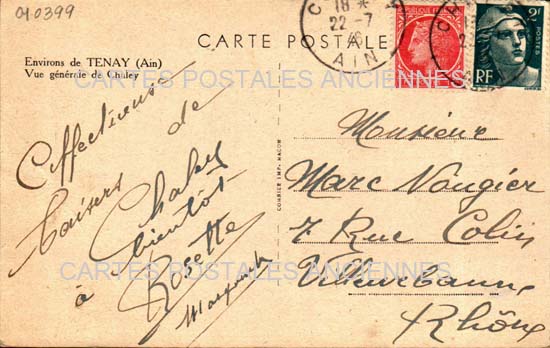 01.0399
CARTE POSTALE
Environs de TENAY (Ain)
Vue générale de Chaley
CARTES POSTALES ANCIENNES
Affectueux
baisers de
Chaley
à bientôt
Rosette
Monsieur
Marc Nougier
7 Rue Colin
Villeurbanne
Rhône
COMBIER IMP. MACON
18 *
22-7
AIN
2F
POSTES
RF
CARTES POSTALES ANCIENNES